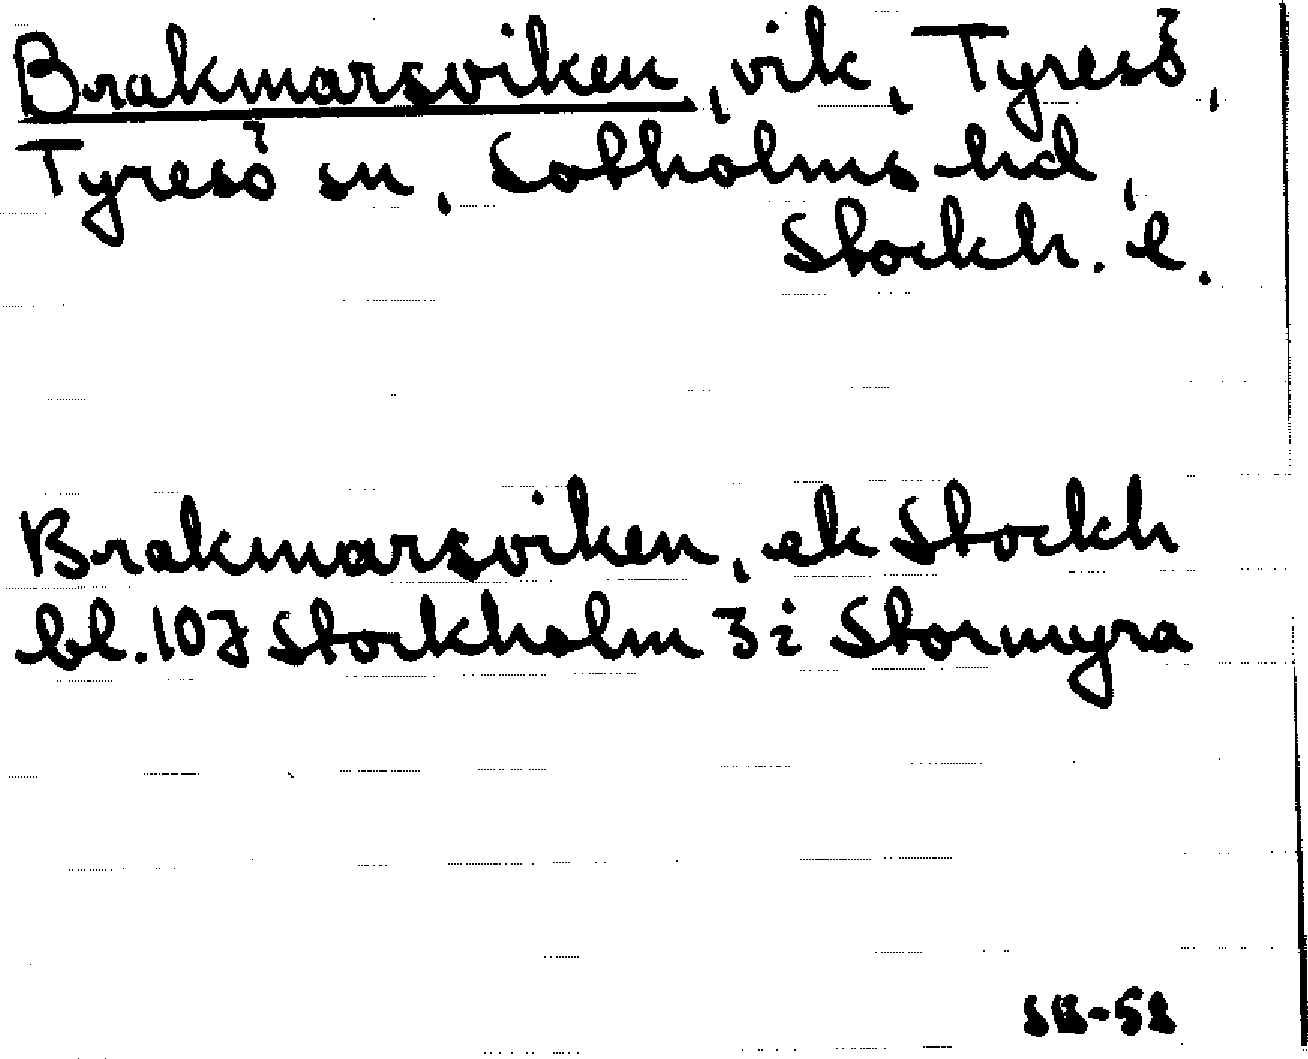 Brakmarsviken, vik, Tyresö,
Tyresö sn, Sotholms hd,
Stockh. l.
Brakmarsviken, ek Stockh
bl. 107 Stockholm 3 i Stormyra